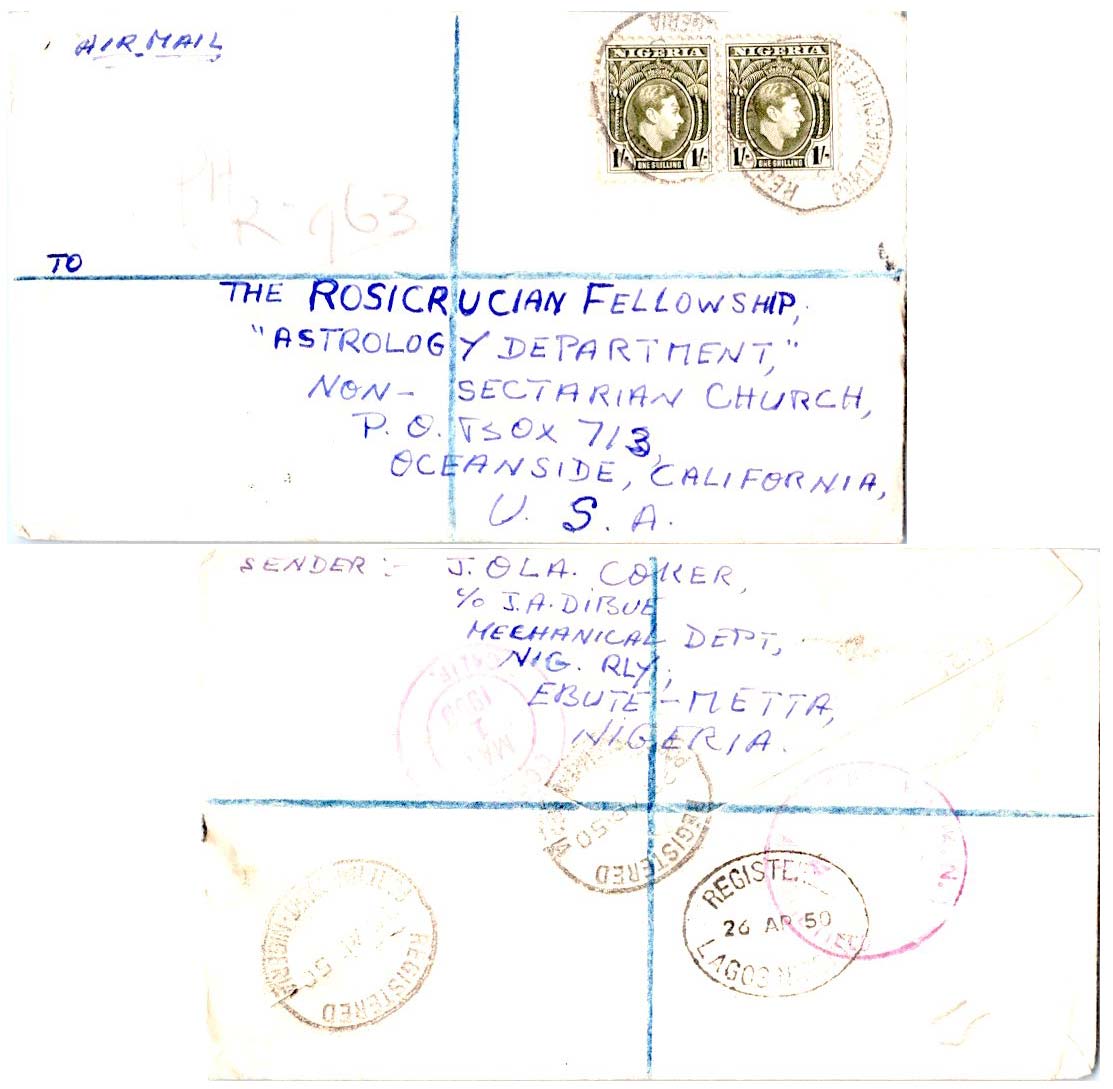 AIR MAIL
NIGERIA
1/- ONE SHILLING 1/-
NIGERIA
1/- ONE SHILLING 1/-
R-963
TO
THE ROSICRUCIAN FELLOWSHIP,
"ASTROLOGY DEPARTMENT,"
NON- SECTARIAN CHURCH,
P. O. BOX 713,
OCEANSIDE, CALIFORNIA,
U. S. A.
SENDER :- J. OLA. COKER,
c/o J. A. DIBUE
MECHANICAL DEPT,
NIG. RLY,
EBUTE-METTA,
NIGERIA.
MAY 1 1950
REGISTERED
50
REGISTERED
26 AP 50
LAGOS
REGISTERED
AP 50